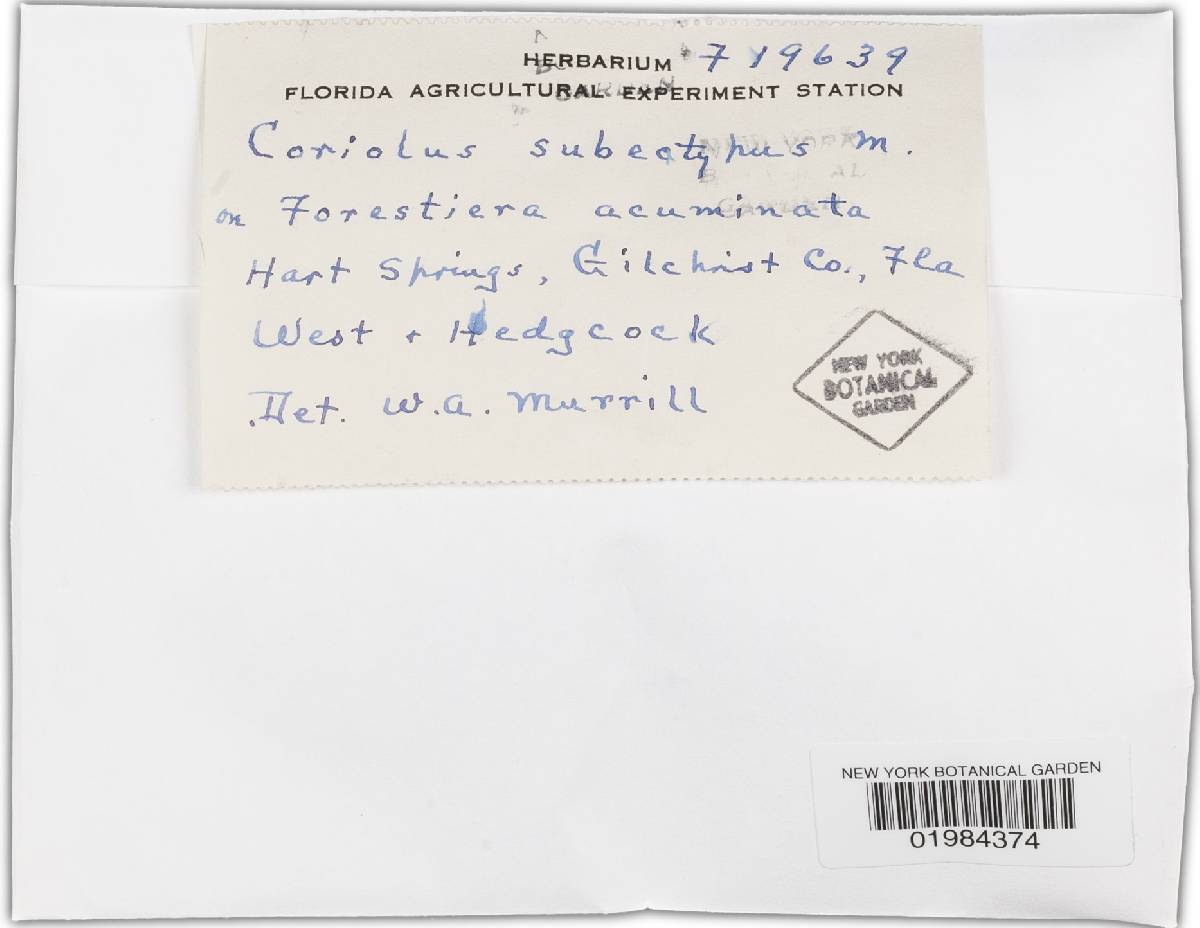 HERBARIUM 7 19639
FLORIDA AGRICULTURAL EXPERIMENT STATION
Coriolus subectypus M.
on Forestiera acuminata
Hart Springs, Gilchrist Co., Fla
West + Hedgcock
Det. W.A. Murrill
NEW YORK
BOTANICAL
GARDEN
NEW YORK BOTANICAL GARDEN
01984374